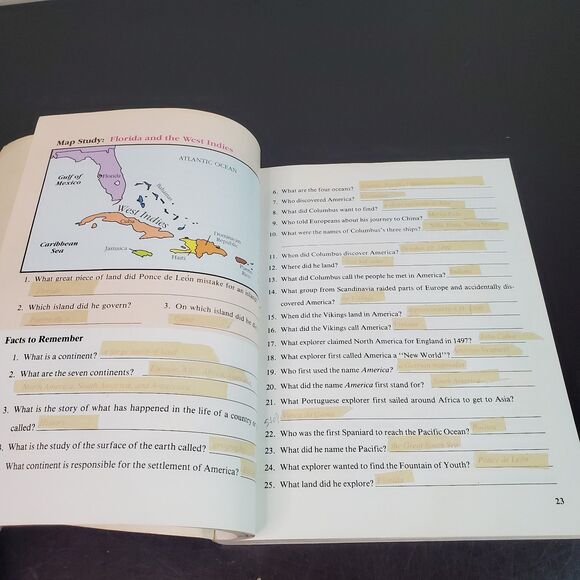 Map Study: Florida and the West Indies
ATLANTIC OCEAN
Gulf of
Mexico
Florida
Bahamas
West Indies
Cuba
Dominican
Republic
Caribbean
Sea
Jamaica
Haiti
Puerto
Rico
1. What great piece of land did Ponce de León mistake for an island?
2. Which island did he govern?
3. On which island did he
Facts to Remember
1. What is a continent?
2. What are the seven continents?
North America, South America, and Antarctica
3. What is the story of what has happened in the life of a country
called? History
. What is the study of the surface of the earth called? geography
What continent is responsible for the settlement of America?
6. What are the four oceans?
7. Who discovered America?
8. What did Columbus want to find?
9. Who told Europeans about his journey to China? Marco Polo
10. What were the names of Columbus's three ships?
11. When did Columbus discover America?
12. Where did he land?
13. What did Columbus call the people he met in America? Indians
14. What group from Scandinavia raided parts of Europe and accidentally dis-
covered America?
15. When did the Vikings land in America?
16. What did the Vikings call America? Vinland
17. What explorer claimed North America for England in 1497? John Cabot
18. What explorer first called America a "New World"? Amerigo Vespucci
19. Who first used the name America?
20. What did the name America first stand for? South America
21. What Portuguese explorer first sailed around Africa to get to Asia?
Vasco da Gama
22. Who was the first Spaniard to reach the Pacific Ocean? Balboa
23. What did he name the Pacific? the Great South Sea
24. What explorer wanted to find the Fountain of Youth? Ponce de León
25. What land did he explore? Florida
23